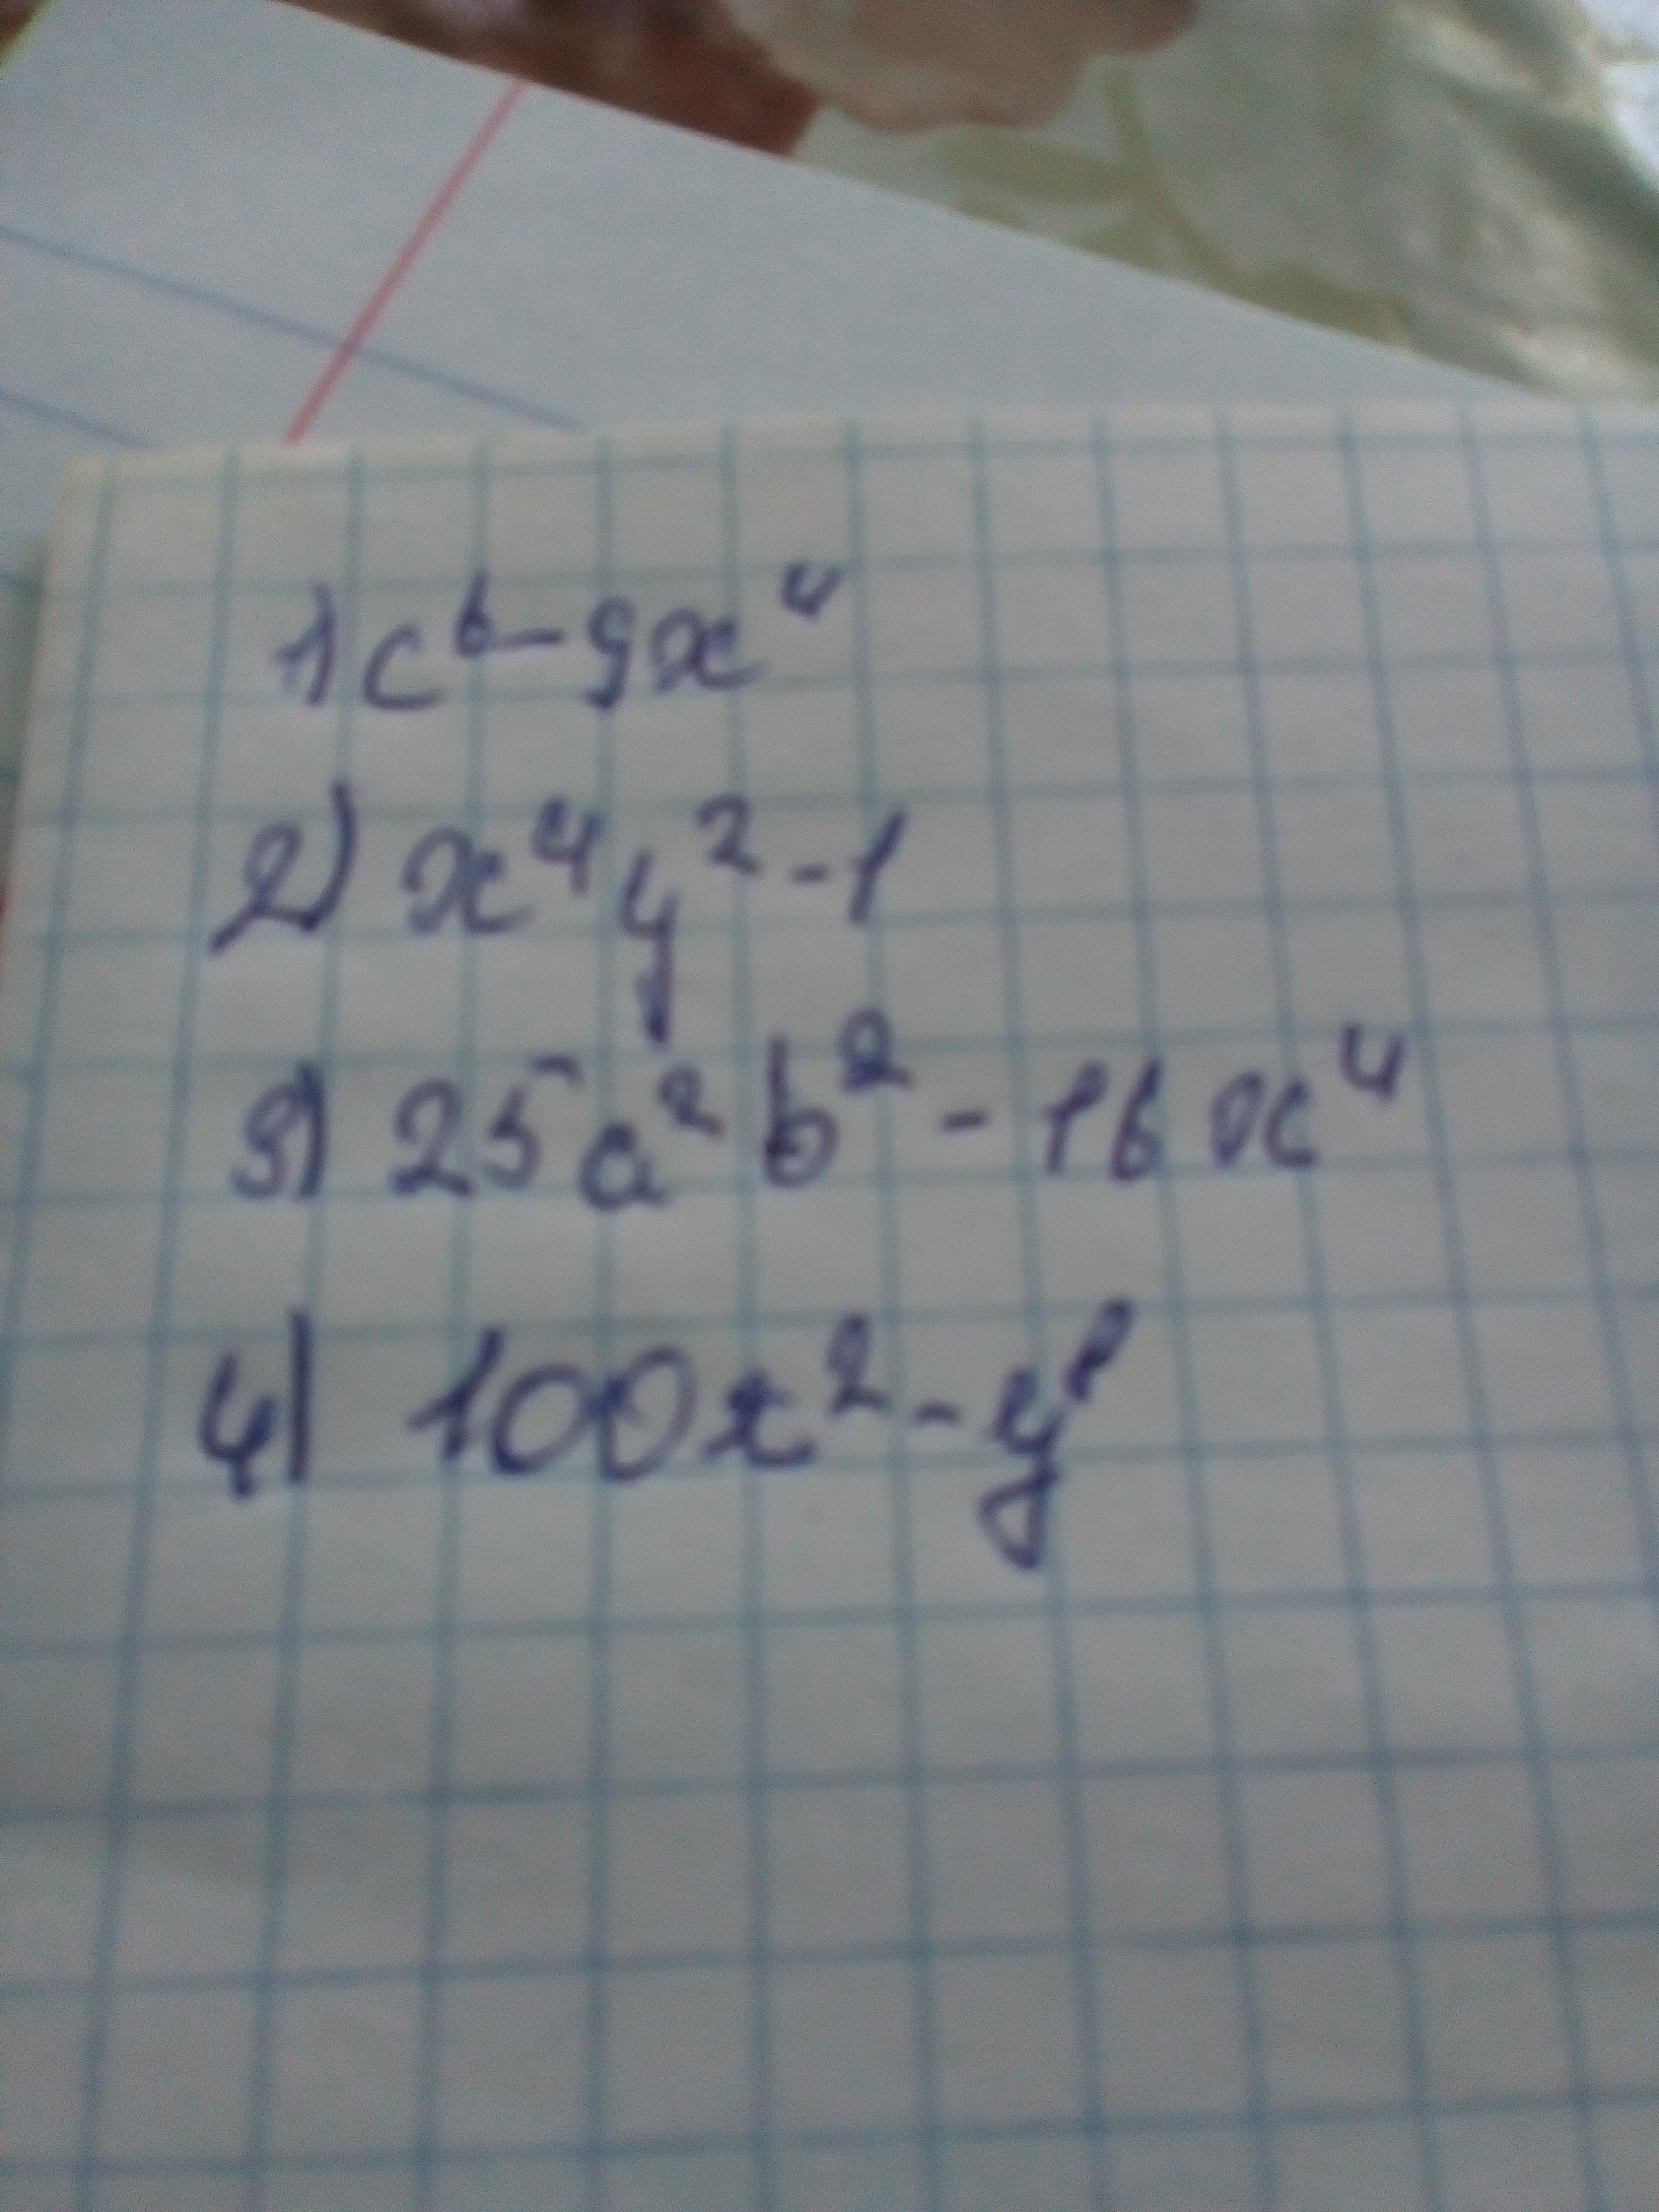 1) c⁶ - 9x⁴
2) x⁴y² - 1
3) 25a²b² - 16x⁴
4) 100x² - y⁸